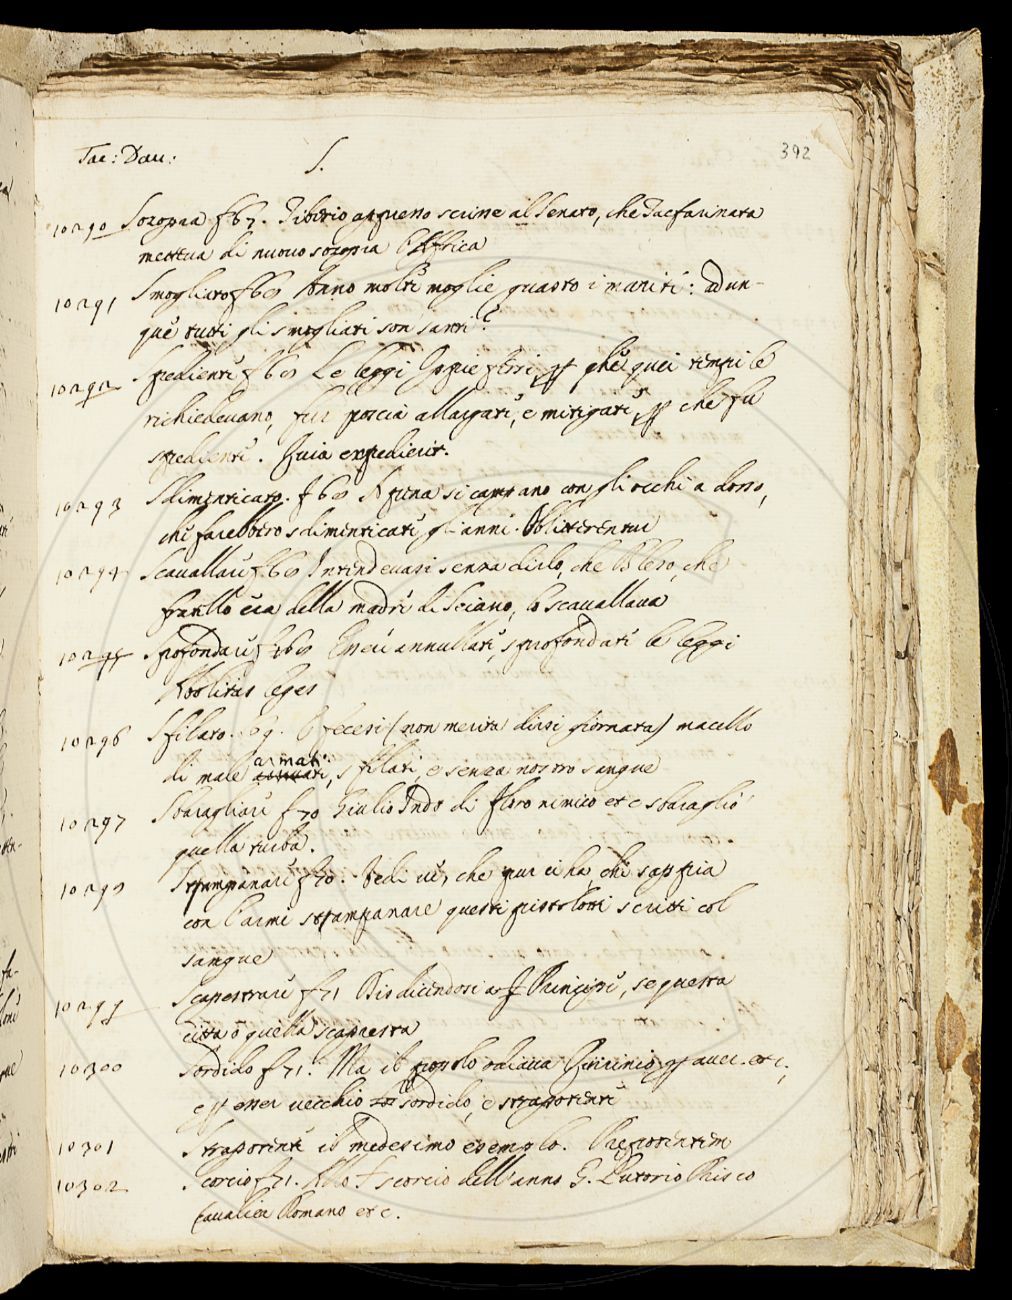 Tac: Dau:
S.
392
10290 Sozopra f 67. Tiberio scrisse al Senato, che Tacfarinata
mettua di nuouo sozopra l'Affrica
10291 Smogliato f 69 Anno molti moglie quasto i mariti: adun-
que tutti gli smogliati son santi?
10292 Spedienti f 69 Le leggi quei tempi le
richiedeuano, fur poscia allargati, e mitigati, che fu
spedienti. Quia expedierit.
10293 Sdimenticato. f 69 A pena si campano con gli occhi a dosso,
chi farebbero sdimenticati gl'anni. Obliterentur
10294 Scauallari f. 69 Intendeuasi senza dirlo, che Bleso, che
fratello era della madre di Seiano, lo scauallaua
10295 Sprofondari f 69 annullati, sprofondati le leggi
Abolitas leges
10296 Sfilato. 69. fecesi (non merita dirsi giornata) macello
di male armati, sfilati, e senza nostro sangue
10297 Sbaragliari f 70 Giulio Indo di Floro nimico etc sbaragliò
quella turba.
10298 Stampanari f 70. Vedi ui, che pur ci ha chi sappia
con l'armi stampanare questi pistolotti scritti col
sangue
10299 Scapestrari f 71 Disdicendosi a Principi, se questa
città o quella scapestra
10300 Sordido f 71. Ma il popolo odiaua Quirinio auer. etc.,
e esser uecchio sordido, e strapotenti
10301 Strapotenti il medesimo esemplo. Praepotentem
10302 Scorcio f 71. Allo scorcio dell'anno G. Lutorio Prisco
Caualier Romano etc.